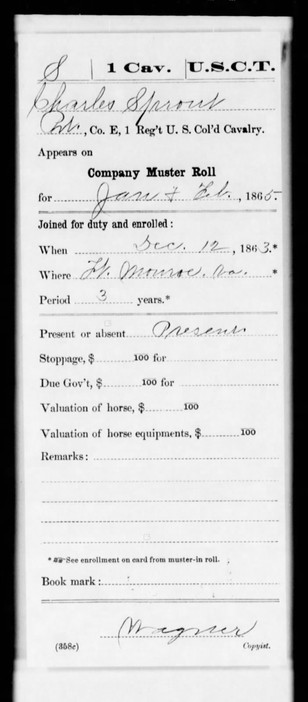 S | 1 Cav. | U.S.C.T.
Charles Sprout
Pvt., Co. E, 1 Reg't U. S. Col'd Cavalry.
Appears on
Company Muster Roll
for Jan & Feb, 1865.
Joined for duty and enrolled:
When Dec. 12, 1863.*
Where Ft. Monroe, Va. *
Period 3 years.*
Present or absent Present
Stoppage, $ 100 for
Due Gov't, $ 100 for
Valuation of horse, $ 100
Valuation of horse equipments, $ 100
Remarks:
* See enrollment on card from muster-in roll.
Book mark:
Wagner
(358c) Copyist.